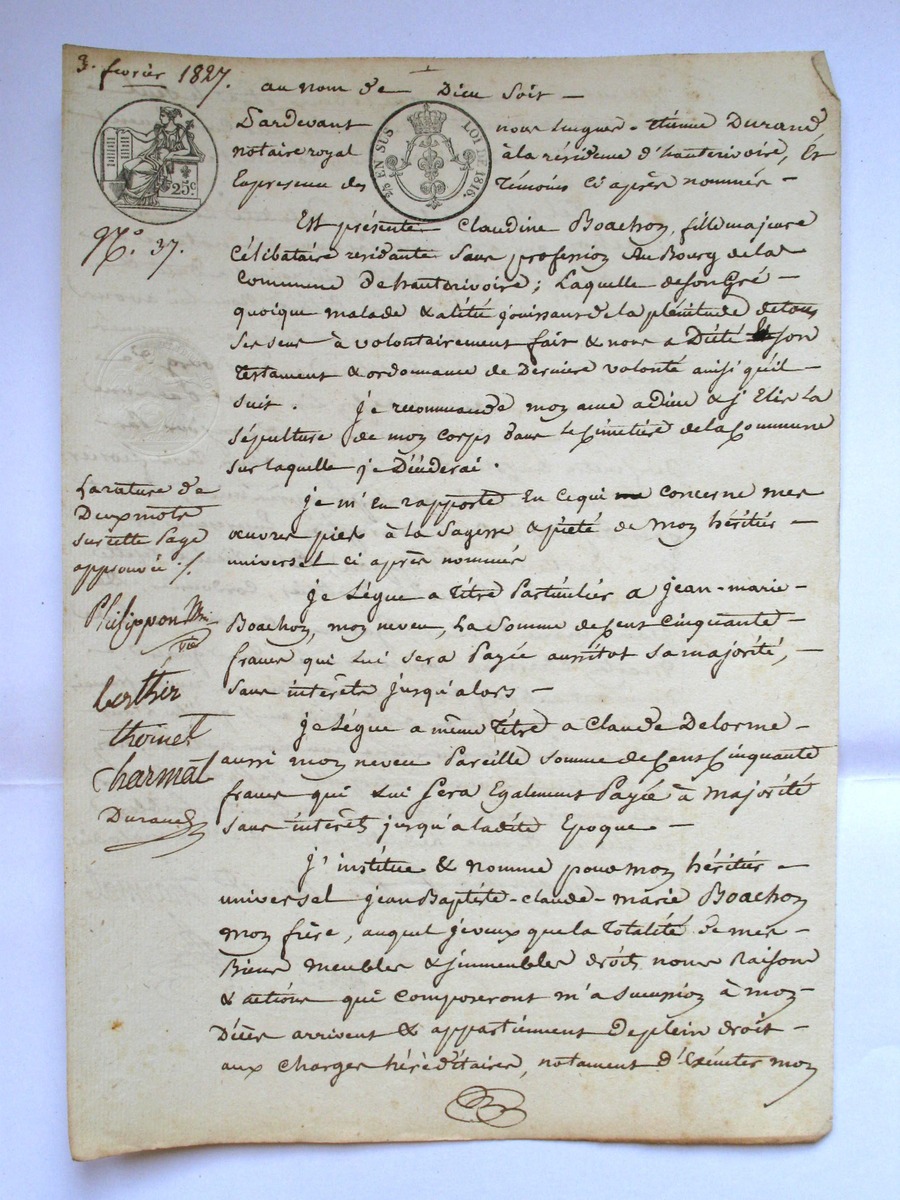 3. fevrier 1827.
au nom de Dieu soit —
Pardevant nous Etienne Durand
notaire royal à la résidence d'hauterivoire, Et
Enpresence des témoins ci après nommés —
25 EN SUS LOI DE 1816.
25c.
N.o 37.
Est présente Claudine Boachon, fille majeure
Célibataire residante sans profession Au Bourg de la
Commune De hauterivoire ; Laquelle de son Gré —
quoique malade & alitée jouissant de la plénitude de tous
ses sens à volontairement fait & nous a Dicté son
testament & ordonnance de Dernière volonté ainsi qu'il —
suit. je recommande mon ame a dieu & j'Elis la
sépulture de mon corps dans le Cimetière de la Commune
sur laquelle je Décéderai.
je m'en rapporte En ce qui concerne mes
œuvres pies à la sagesse & piété de mon héritier —
universel ci après nommé
je Lègue a titre Particulier a jean-marie —
Boachon, mon neveu, La somme de Cent Cinquante —
francs qui Lui sera Payée aussitot sa majorité, —
sans intérêts jusqu'alors —
je Lègue a même titre a Claude Delorme —
aussi mon neveu Pareille somme de Cent Cinquante
francs qui Lui sera Egalement Payée à majorité
sans intérêts jusqu'a ladite Epoque —
j'institue & nomme pour mon héritier —
universel jean Baptiste-claude-marie Boachon
mon frère, auquel je veux que la totalité de mes —
Biens meubles & jmmeubles droits noms Raisons
& actions qui composeront m'a succession à mon
Décès arrivent & appartiennent de plein droit —
aux charges héréditaires, notament d'Exécuter mon
La rature de
Deux mots
sur cette Page
approuvée ./.
Philippon
Berthier
thoinet
Charmat
Durand